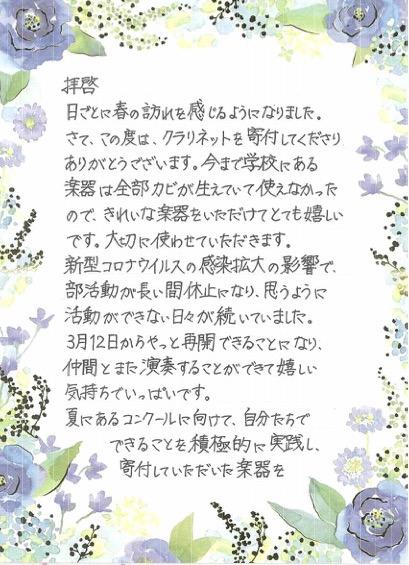 拝啓
日ごとに春の訪れを感じるようになりました。
さて、この度は、クラリネットを寄付してくださり
ありがとうございます。今まで学校にある
楽器は全部カビが生えていて使えなかった
ので、きれいな楽器をいただけてとても嬉しい
です。大切に使わせていただきます。
新型コロナウイルスの感染拡大の影響で、
部活動が長い間休止になり、思うように
活動ができない日々が続いていました。
3月12日からやっと再開できることになり、
仲間とまた演奏することができて嬉しい
気持ちでいっぱいです。
夏にあるコンクールに向けて、自分たちで
できることを積極的に実践し、
寄付していただいた楽器を